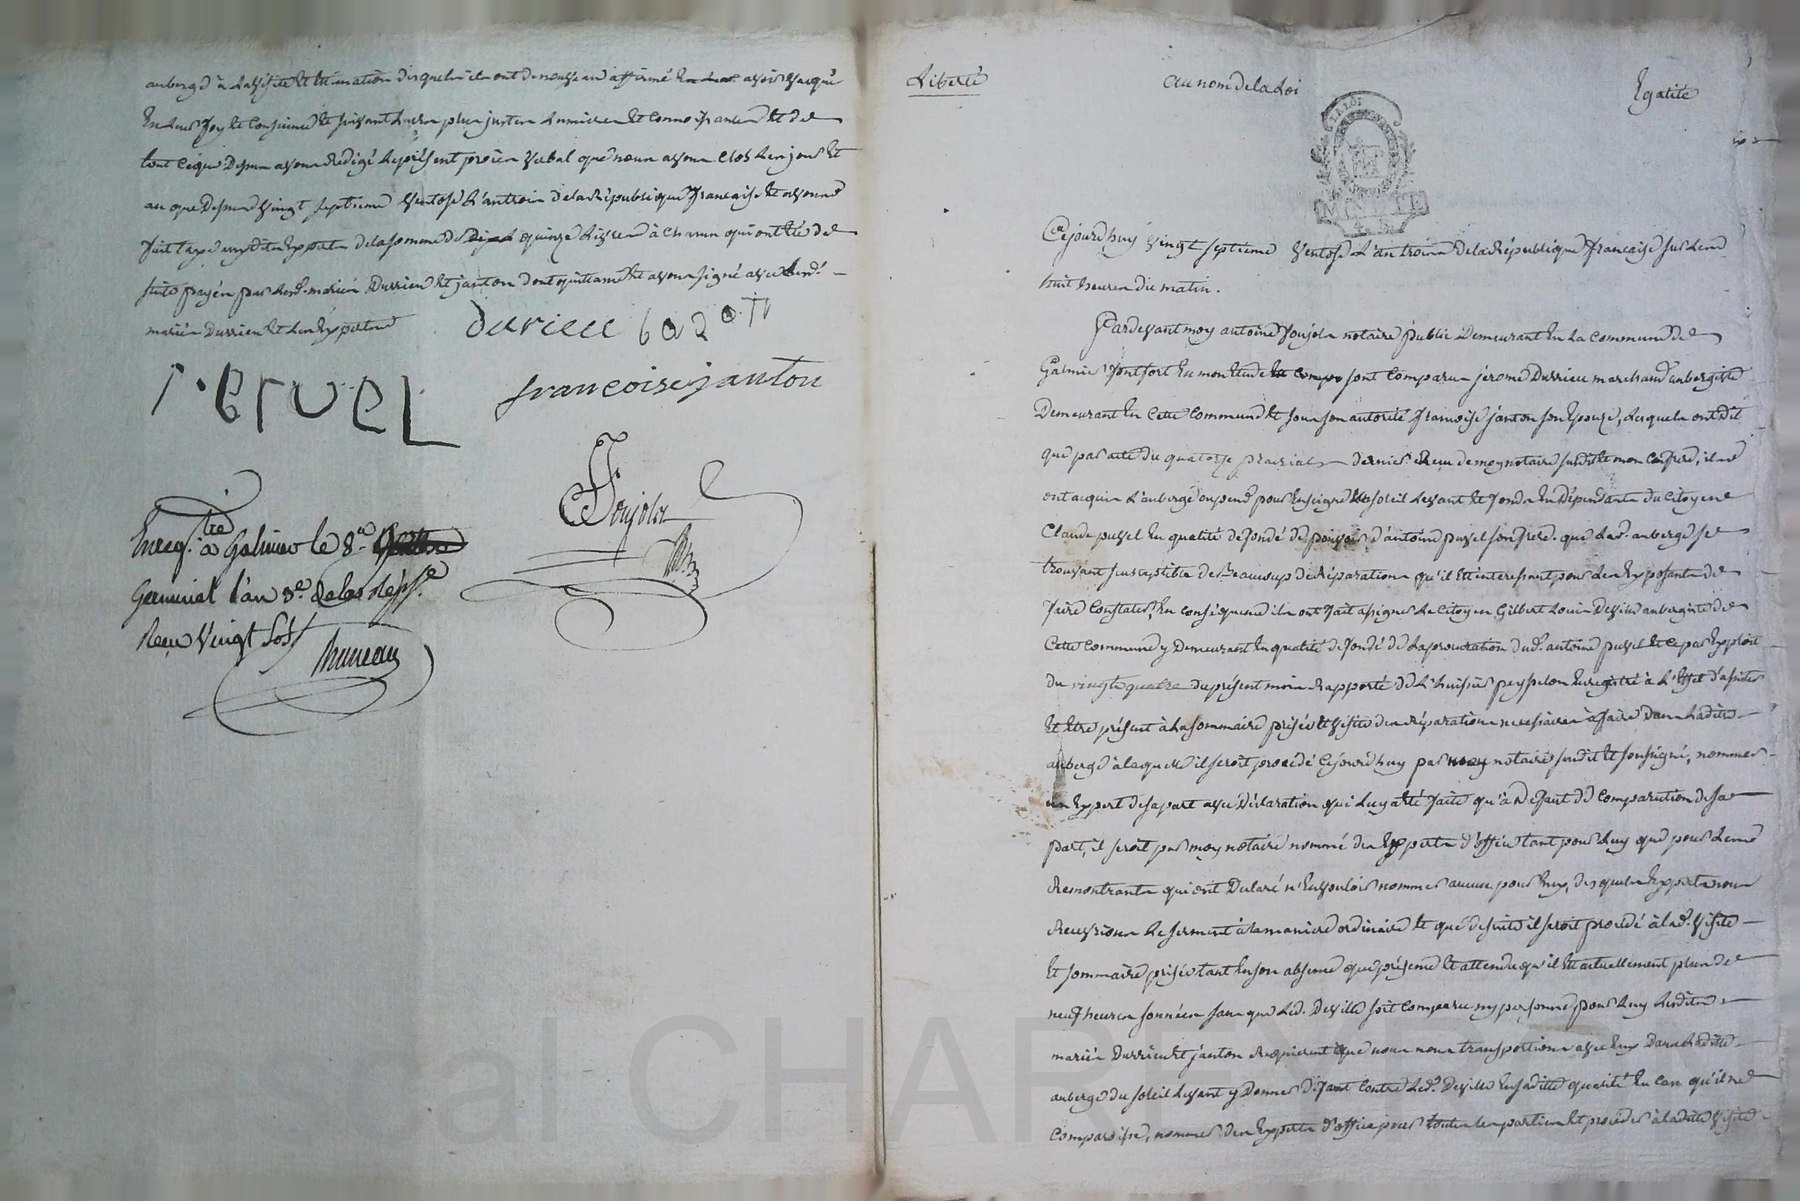 auberge à la visite et estimation desquels ils ont de nouveau affirmé avoir vacqué
en leur foy et conscience et suivant leurs plus justes lumieres et connoissances et de
tout ce que dessus avons redigé le présent procès verbal que nous avons clos les jour et
an que dessus vingt septieme ventose l'an trois de la République francaise et avons
fait taxe auxdits experts de la somme de quinze livres à chacun qui ont été de
suite payés par lesd. mariés Durrieu et janton dont quittance et avons signé avec lesd.
mariés Durrieu et les experts
durieu
francoise janton
Foujols
Enregtré à Galmier le 8e
Germinal l'an 3e de la Répe
Reçu Vingt sols
Liberté au nom de la Loi Egalité
LA LOI
Cejourd'huy vingt septieme ventose l'an trois de la République francaise sur les
huit heures du matin.
Pardevant moy antoine Foujols notaire public demeurant en la commune de
Galmier Fontfort en mon etude sont comparus jerome Durrieu marchand aubergiste
demeurant en cette commune et sous son autorité francoise janton son epouse, lesquels ont dit
que par acte du quatorze prairial dernier reçu de moy notaire susdit et mon confrere, ils
ont acquis l'auberge où pend pour enseigne le soleil levant et fonds en dépendants du citoyen
Claude puzel en qualité de fondé de pouvoir d'antoine puzel son frere. que lad. auberge se
trouvant susceptible de beaucoup de réparations qu'il est interessant pour les exposants de
faire constater, en conséquence ils ont fait assigner le citoyen Gilbert Louis Deville aubergiste de
cette commune y demeurant en qualité de fondé de la procuration dud. antoine puzel et ce par exploit
du vingt quatre du présent mois rapporté de l'huissier peysselon enregistré à l'effet d'assister
et etre présent à la sommaire prisée et visite des réparations necessaires à faire dans ladite
auberge à laquelle il seroit procédé cejourd'huy par moy notaire susdit et soussigné, nommer
un expert de sa part avec déclaration qui luy a été faite qu'à défaut de comparution de sa
part, il seroit par moy notaire nommé des experts d'office tant pour luy que pour les
Remontrants qui ont declaré n'en vouloir nommer aucun pour eux, desquels experts nous
recevrions le serment à la maniere ordinaire et que de suite il seroit procédé à lad. visite
et sommaire prisée tant en son absence que présence et attendu qu'il est actuellement plus de
neuf heures sonnées sans que led. Deville soit comparu ny personne pour luy lesdits
mariés Durrieu et janton requierent que nous nous transportions avec eux dans ladite
auberge du soleil levant y donner défaut contre led. Deville en sadite qualité en cas qu'il ne
comparoisse, nommer des experts d'office pour toutes les parties et procéder à ladite visite